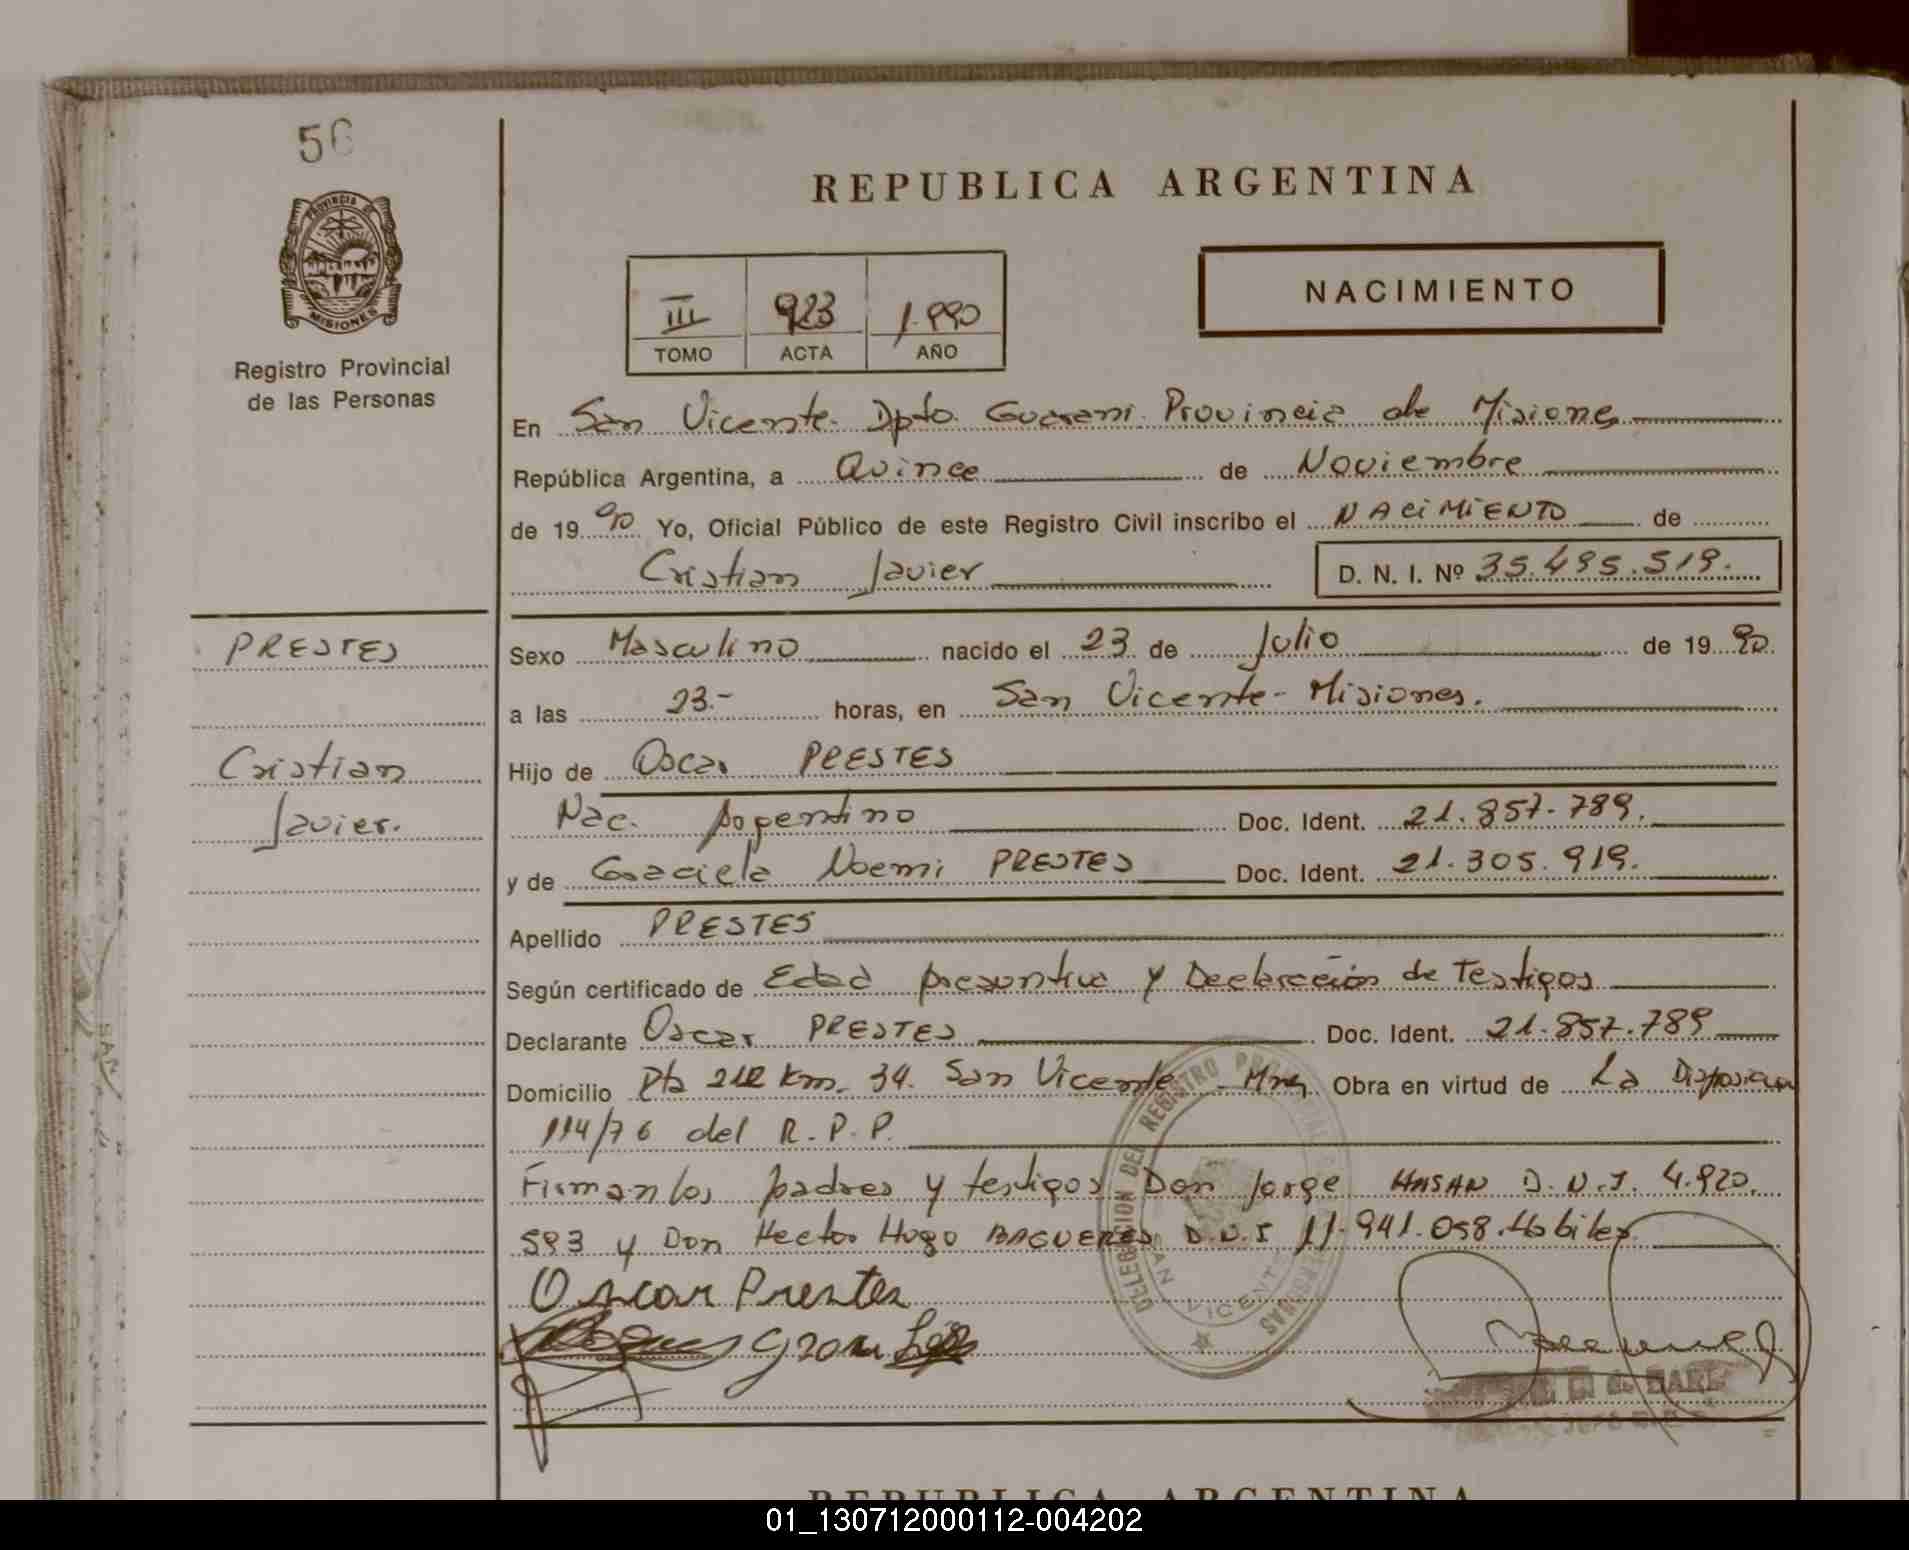 56
PROVINCIA DE
MISIONES
Registro Provincial
de las Personas
REPUBLICA ARGENTINA
III 923 1.990
TOMO ACTA AÑO
NACIMIENTO
En San Vicente. Dpto. Guarani. Provincia de Misiones
República Argentina, a Quince de Noviembre
de 19 90 Yo, Oficial Público de este Registro Civil inscribo el NACIMIENTO de
Cristian Javier D. N. I. Nº 35.495.519.
PRESTES
Cristian
Javier.
Sexo Masculino nacido el 23 de Julio de 19 90.
a las 23.- horas, en San Vicente - Misiones.
Hijo de Oscar PRESTES
Nac. Argentino Doc. Ident. 21.857.789.
y de Graciela Noemi PRESTES Doc. Ident. 21.305.919.
Apellido PRESTES
Según certificado de Edad presuntiva y Declaración de Testigos
Declarante Oscar PRESTES Doc. Ident. 21.857.789
Domicilio Km. 34. San Vicente - Mnes Obra en virtud de La Disposicion
114/76 del R.P.P.
Firman los padres y testigos Don Jorge HASAN D.N.I. 4.920.
593 y Don Hector Hugo BAGUERES D.N.I 11.941.058. Habiles
Oscar Prestes
DELEGACION DEL REGISTRO PROVINCIAL DE LAS PERSONAS
SAN VICENTE
REPUBLICA ARGENTINA
01_130712000112-004202